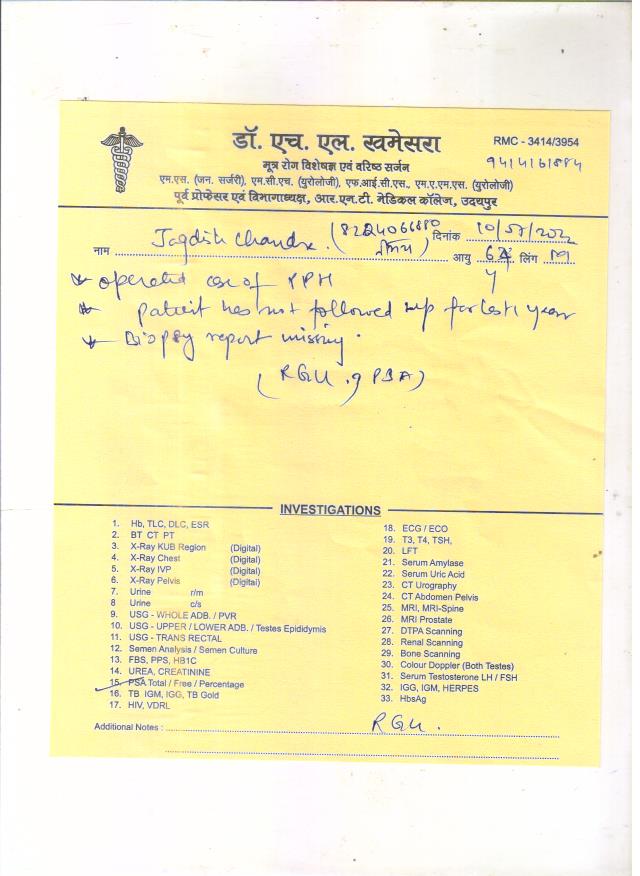 डॉ. एच. एल. खमेसरा
RMC - 3414/3954
9414161884
मूत्र रोग विशेषज्ञ एवं वरिष्ठ सर्जन
एम.एस. (जन. सर्जरी), एम.सी.एच. (युरोलोजी), एफ.आई.सी.एस., एम.ए.एम.एस. (युरोलोजी)
पूर्व प्रोफेसर एवं विभागाध्यक्ष, आर.एन.टी. मेडिकल कॉलेज, उदयपुर
दिनांक 10/07/2022
नाम Jagdish Chandra. आयु लिंग M
* operated case of
* Patient has not followed up for last 1 year
* Biopsy report missing.
(RGU
INVESTIGATIONS
1. Hb, TLC, DLC, ESR
2. BT CT PT
3. X-Ray KUB Region (Digital)
4. X-Ray Chest (Digital)
5. X-Ray IVP (Digital)
6. X-Ray Pelvis (Digital)
7. Urine r/m
8 Urine c/s
9. USG - WHOLE ADB. / PVR
10. USG - UPPER / LOWER ADB. / Testes Epididymis
11. USG - TRANS RECTAL
12. Semen Analysis / Semen Culture
13. FBS, PPS, HB1C
14. UREA, CREATININE
15. PSA Total / Free / Percentage
16. TB IGM, IGG, TB Gold
17. HIV, VDRL
18. ECG / ECO
19. T3, T4, TSH,
20. LFT
21. Serum Amylase
22. Serum Uric Acid
23. CT Urography
24. CT Abdomen Pelvis
25. MRI, MRI-Spine
26. MRI Prostate
27. DTPA Scanning
28. Renal Scanning
29. Bone Scanning
30. Colour Doppler (Both Testes)
31. Serum Testosterone LH / FSH
32. IGG, IGM, HERPES
33. HbsAg
Additional Notes : RGU.